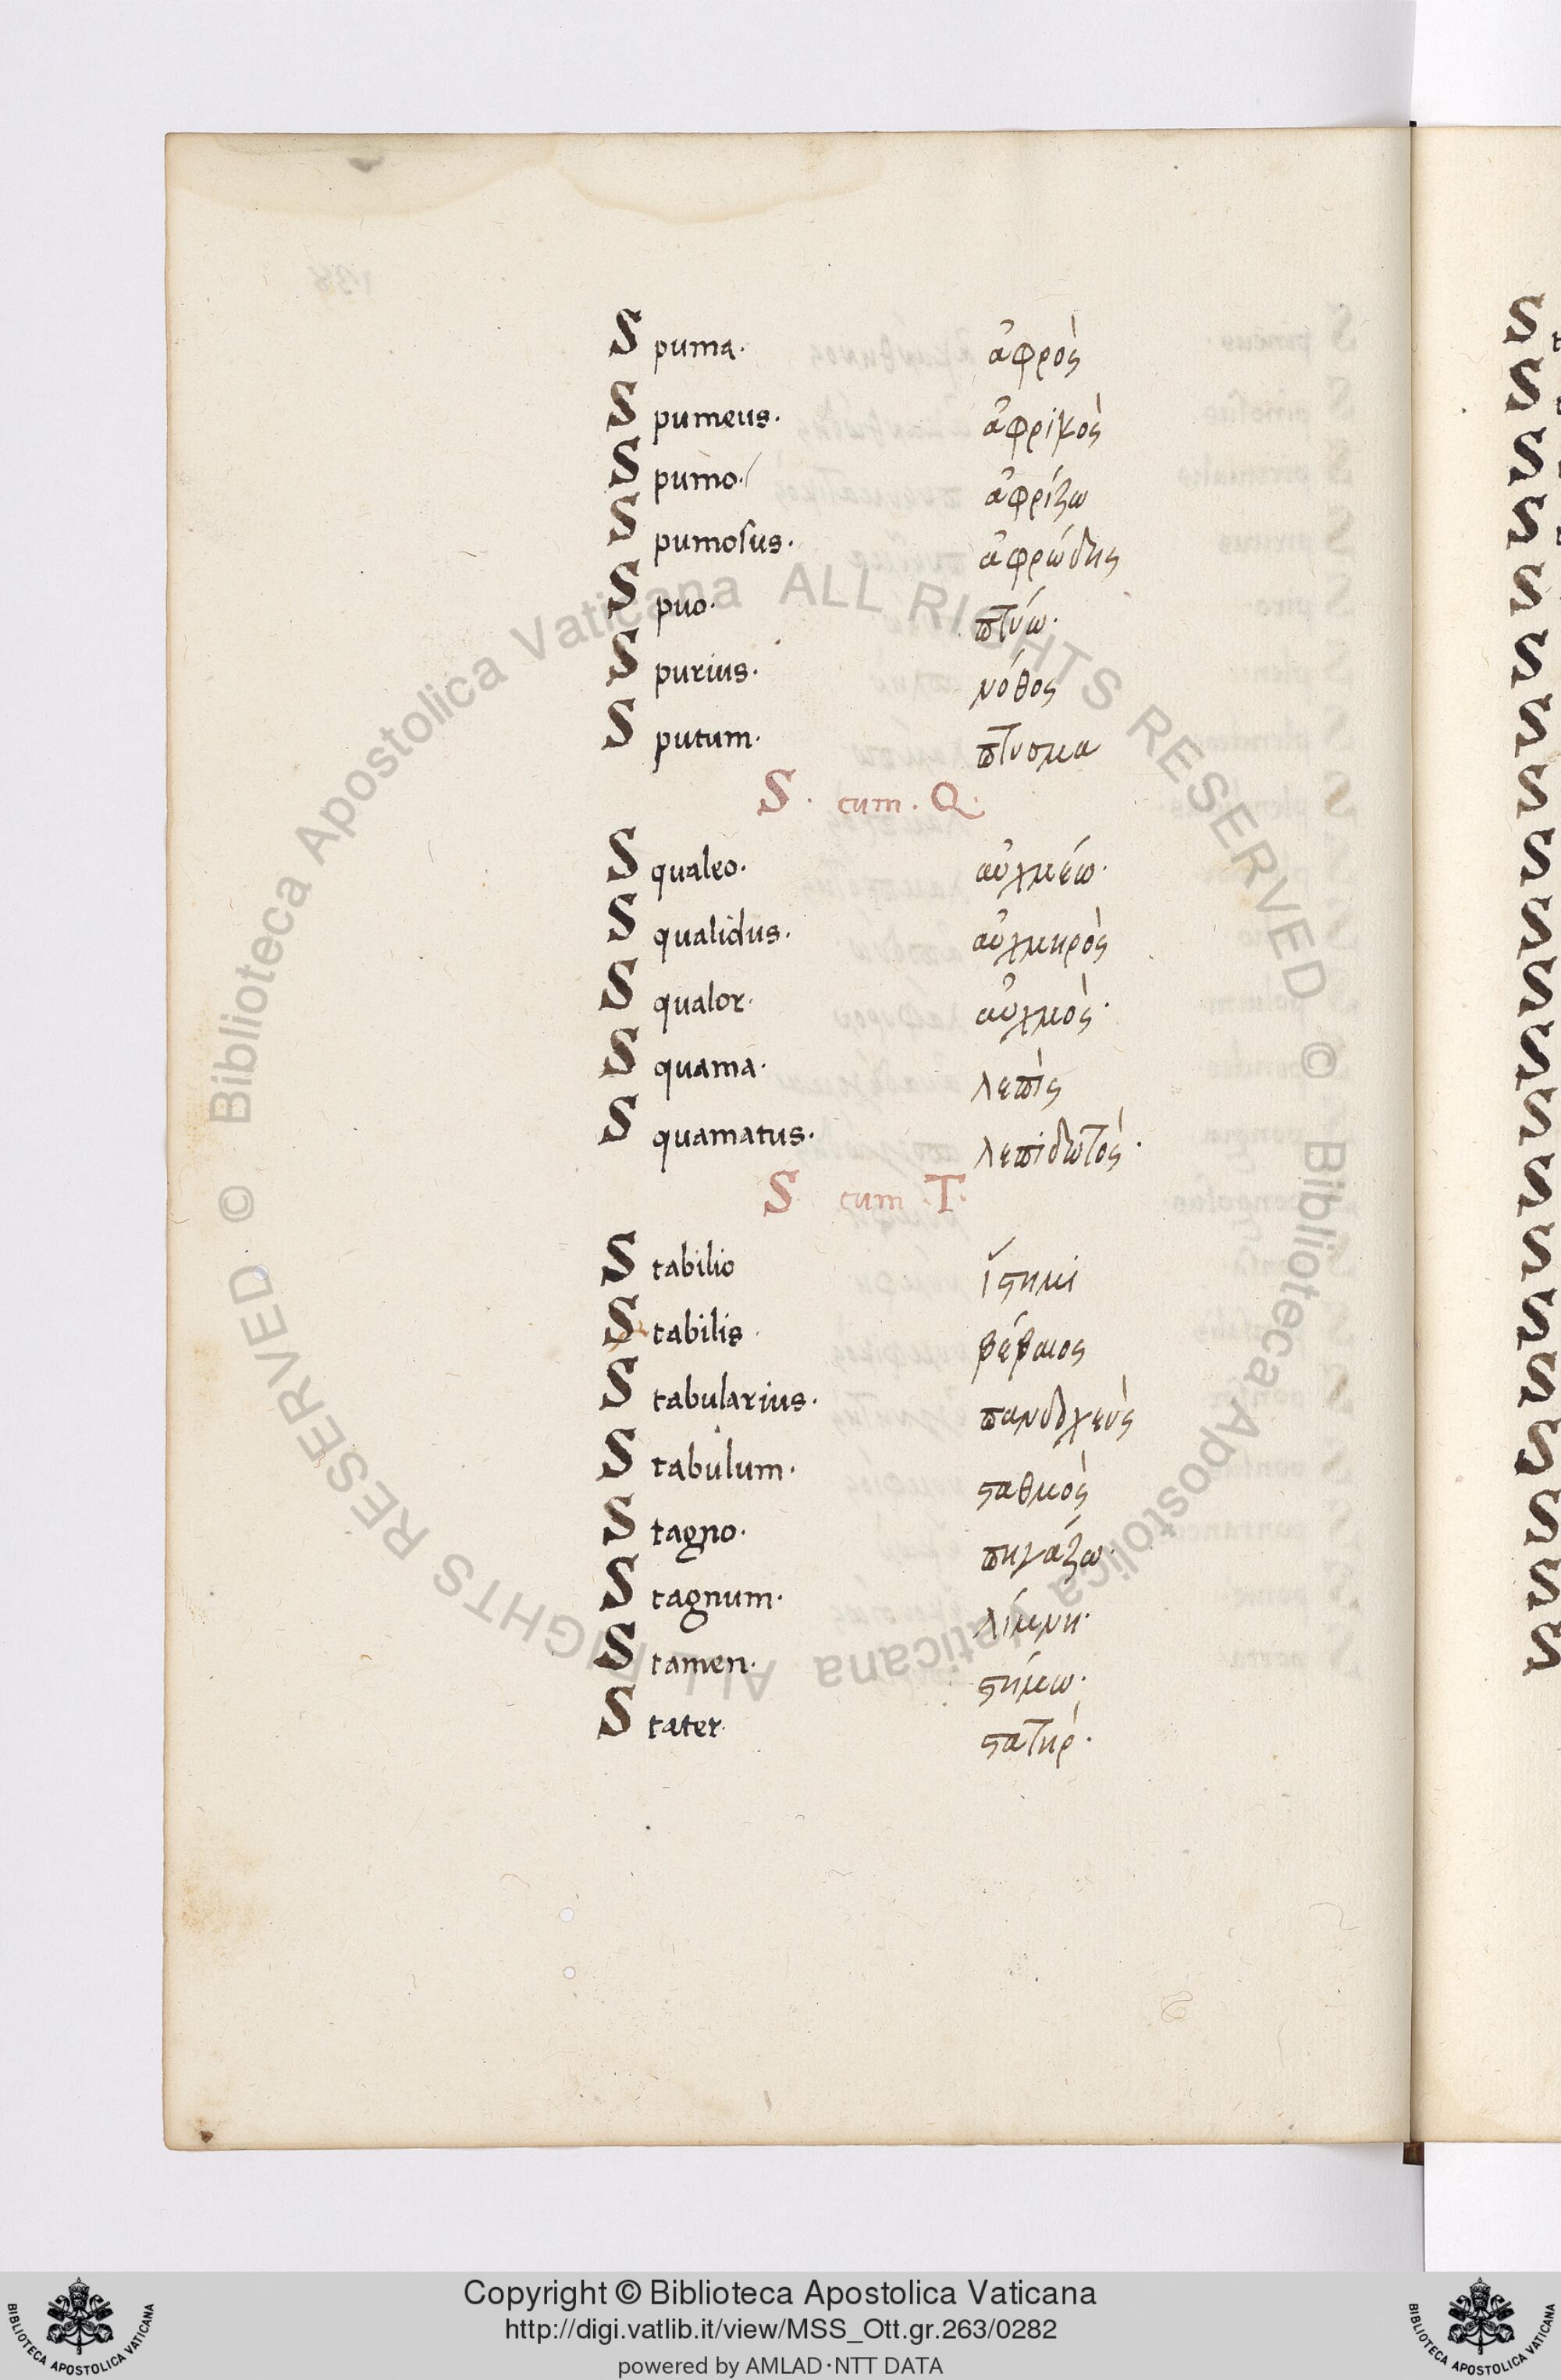 Spuma· ἀφρὸς
Spumeus· ἀφρικὸς
Spumo· ἀφρίζω
Spumosus· ἀφρώδης
Spuo· πτύω·
Spurius· νόθος
Sputum· πτυσμα
S· cum· Q·
Squaleo· αὐχμέω·
Squalidus· αὐχμηρὸς
Squalor· αὐχμὸς·
Squama· λεπὶς
Squamatus· λεπιδωτὸς·
S cum ·T·
Stabilio ἵστημι
Stabilis· βέβαιος
Stabularius· πανδοχεὺς
Stabulum· σταθμὸς
Stagno· πηγάζω·
Stagnum· λίμνη·
Stamen· στήμω·
Stater· στατὴρ·
© Biblioteca Apostolica Vaticana ALL RIGHTS RESERVED
© Biblioteca Apostolica Vaticana ALL RIGHTS RESERVED
Copyright © Biblioteca Apostolica Vaticana
http://digi.vatlib.it/view/MSS_Ott.gr.263/0282
powered by AMLAD·NTT DATA
BIBLIOTECA APOSTOLICA VATICANA
BIBLIOTECA APOSTOLICA VATICANA